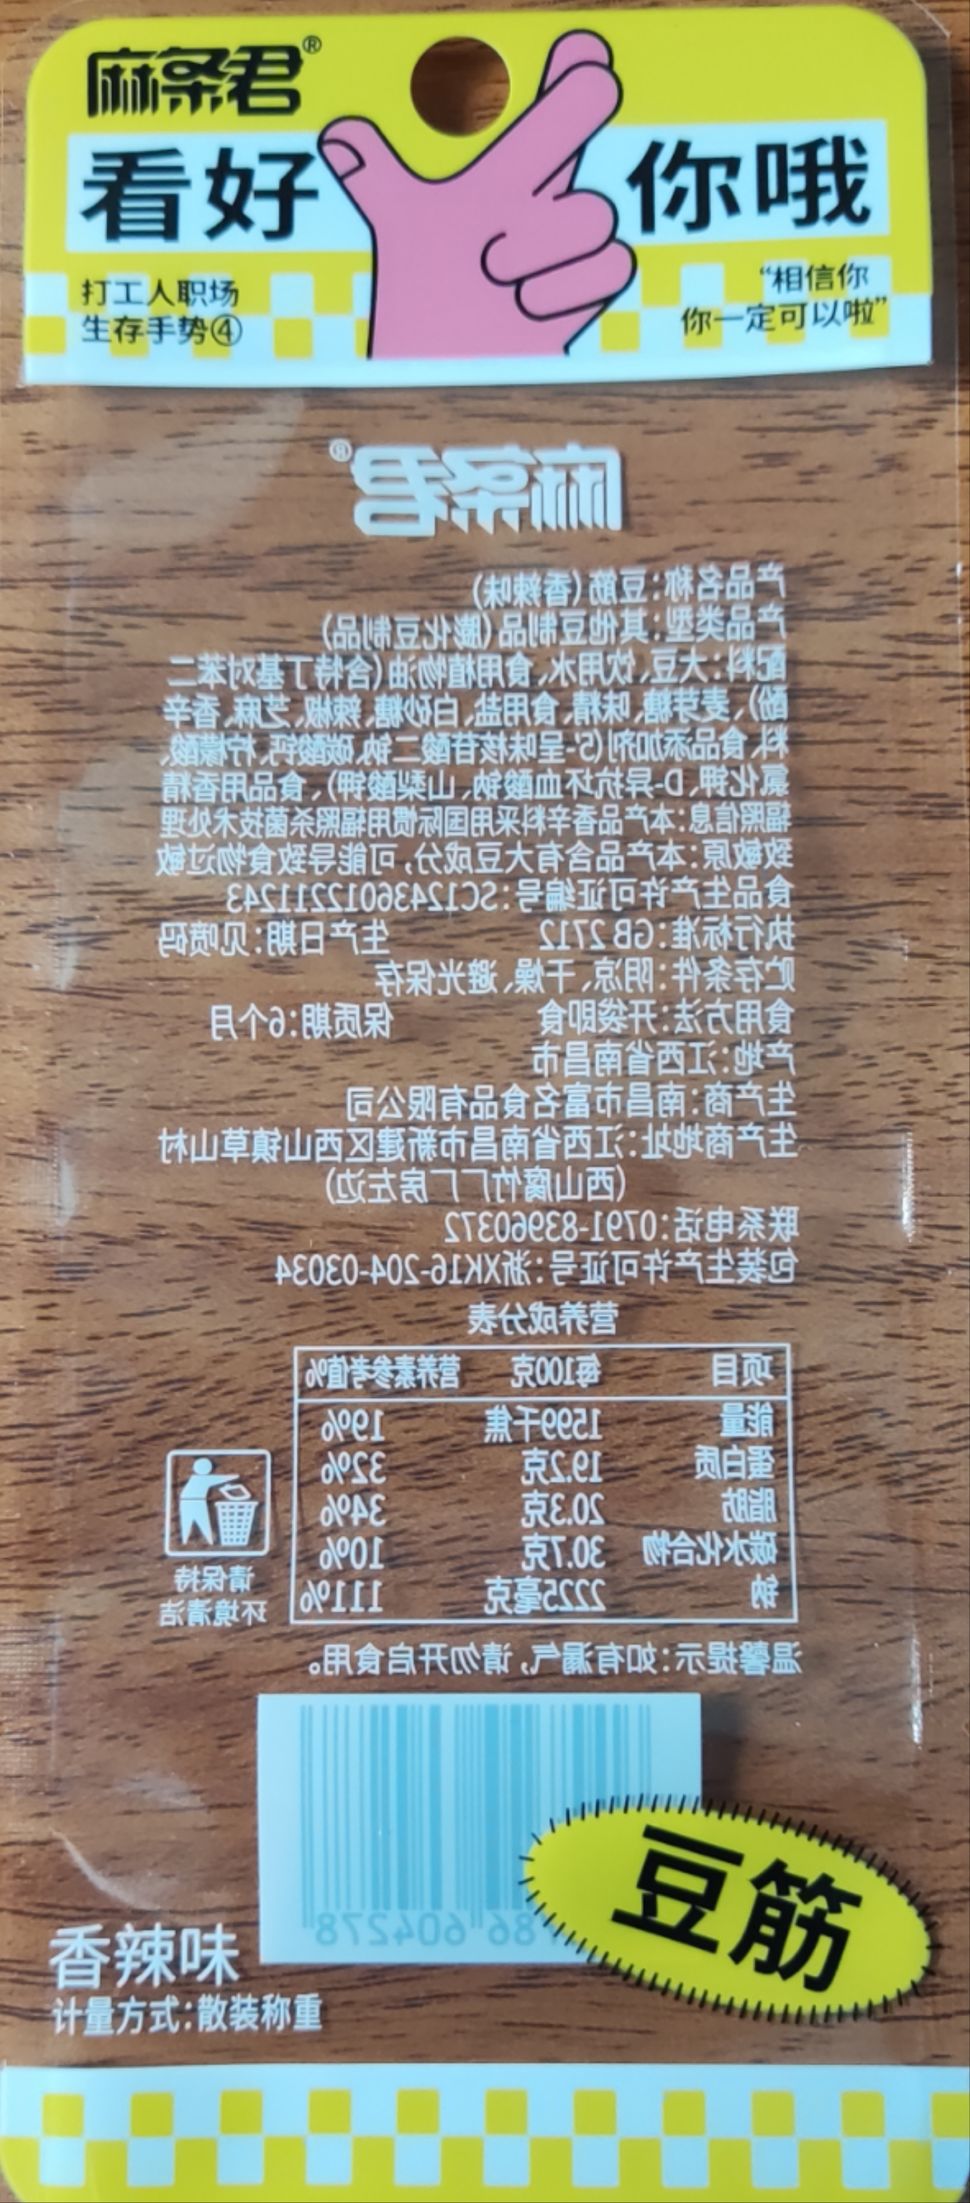 麻条君®
看好你哦
打工人职场
生存手势④
“相信你
你一定可以啦”
麻条君®
产品名称:豆筋(香辣味)
产品类型:其他豆制品(膨化豆制品)
配料:大豆、饮用水、食用植物油(含特丁基对苯二
酚)、麦芽糖、味精、食用盐、白砂糖、辣椒、芝麻、香辛
料、食品添加剂(5'-呈味核苷酸二钠、碳酸钙、柠檬酸、
氯化钾、D-异抗坏血酸钠、山梨酸钾)、食品用香精
辐照信息:本产品香辛料采用国际惯用辐照杀菌技术处理
致敏原:本产品含有大豆成分,可能导致食物过敏
食品生产许可证编号:SC12436012211243
执行标准:GB 2712 生产日期:见喷码
贮存条件:阴凉、干燥、避光保存
食用方法:开袋即食 保质期:6个月
产地:江西省南昌市
生产商:南昌市富名食品有限公司
生产商地址:江西省南昌市新建区西山镇草山村
(西山腐竹厂厂房左边)
联系电话:0791-83960372
包装生产许可证号:浙XK16-204-03034
营养成分表
项目 每100克 营养素参考值%
能量 1599千焦 19%
蛋白质 19.2克 32%
脂肪 20.3克 34%
碳水化合物 30.7克 10%
钠 2225毫克 111%
请保持
环境清洁
温馨提示:如有漏气,请勿开启食用。
86 604278
豆筋
香辣味
计量方式:散装称重